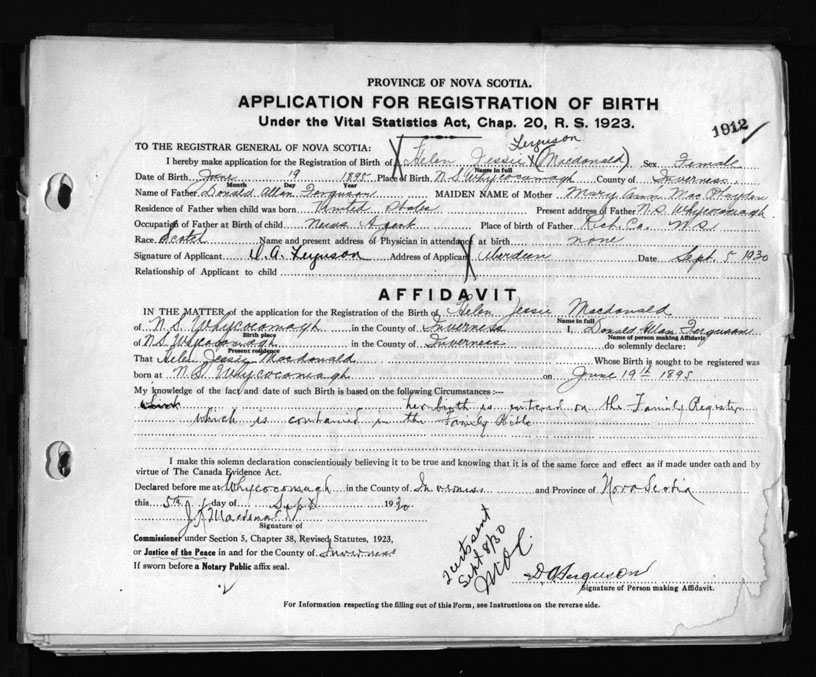 PROVINCE OF NOVA SCOTIA.
APPLICATION FOR REGISTRATION OF BIRTH
Under the Vital Statistics Act, Chap. 20, R. S. 1923.
1912
TO THE REGISTRAR GENERAL OF NOVA SCOTIA:
Ferguson
I hereby make application for the Registration of Birth of Helen Jessie (Macdonald) Sex Female
Name in full
Date of Birth June 19 1895 Place of Birth N.S. Whycocomagh County of Inverness
Month Day Year
Name of Father Donald Allan Ferguson MAIDEN NAME of Mother Mary Ann
Residence of Father when child was born United States Present address of Father N.S. Whycocomagh
Occupation of Father at Birth of child News Agent Place of birth of Father Rich. Co. N.S.
Race Scotch Name and present address of Physician in attendance at birth none
Signature of Applicant D. A. Ferguson Address of Applicant Aberdeen Date Sept. 5 1930
Relationship of Applicant to child
AFFIDAVIT
IN THE MATTER of the application for the Registration of the Birth of Helen Jessie Macdonald
Name in full
of N.S. Whycocomagh in the County of Inverness I, Donald Allan Ferguson
Birth place Name of Person making Affidavit
of N.S. Whycocomagh in the County of Inverness do solemnly declare:
Present residence
That Helen Jessie Macdonald Whose Birth is sought to be registered was
born at N.S. Whycocomagh on June 19th 1895
My knowledge of the fact and date of such Birth is based on the following Circumstances :—
her birth is entered on the Family Register
which is contained in the Family Bible
I make this solemn declaration conscientiously believing it to be true and knowing that it is of the same force and effect as if made under oath and by
virtue of The Canada Evidence Act.
Declared before me at Whycocomagh in the County of Inverness and Province of Nova Scotia
this 5th day of Sept 1930
Signature of
Commissioner under Section 5, Chapter 38, Revised Statutes, 1923,
or Justice of the Peace in and for the County of Inverness
If sworn before a Notary Public affix seal.
Sept 8/30
D A Ferguson
Signature of Person making Affidavit.
For Information respecting the filling out of this Form, see Instructions on the reverse side.